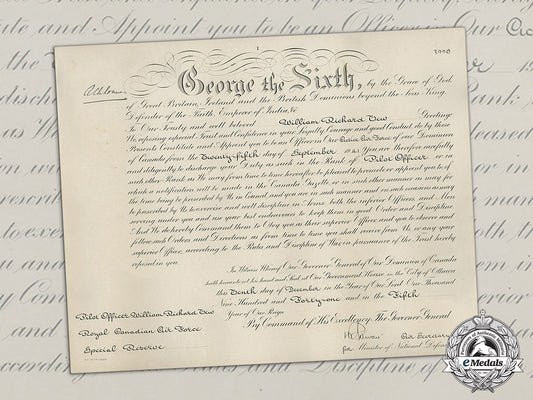 1
George the Sixth, by the Grace of God,
of Great Britain, Ireland and the British Dominions beyond the Seas King,
Defender of the Faith, Emperor of India, &c.
To Our Trusty and well beloved William Richard Dew Greeting:
We, reposing especial Trust and Confidence in your Loyalty, Courage and good Conduct, do by these
Presents Constitute and Appoint you to be an Officer in Our Air Force of our Dominion
of Canada from the Twenty-fifth day of September 1941 You are therefore carefully
and diligently to discharge your Duty as such in the Rank of Pilot Officer or in
such other Rank as We may from time to time hereafter be pleased to promote or appoint you to of
which a notification will be made in the Canada Gazette, or in such other manner as may for
the time being be prescribed by Us in Council and you are in such manner and on such occasions as may
be prescribed by Us to exercise and well discipline in Arms, both the inferior Officers and Men
serving under you and use your best endeavours to keep them in good Order and Discipline
And We do hereby Command them to Obey you as their superior Officer and you to observe and
follow such Orders and Directions as from time to time you shall receive from Us, or any your
superior Officer, according to the Rules and Discipline of War, in pursuance of the Trust hereby
reposed in you.
In Witness Whereof Our Governor General of Our Dominion of Canada
hath hereunto set his hand and Seal at Our Government House in the City of Ottawa
this Tenth day of December in the Year of Our Lord One Thousand
Nine Hundred and Forty-one and in the Fifth
Year of Our Reign
By Command of His Excellency The Governor General
Pilot Officer William Richard Dew
Royal Canadian Air Force
Special Reserve
Air Secretary
for Minister of National Defence
eMedals